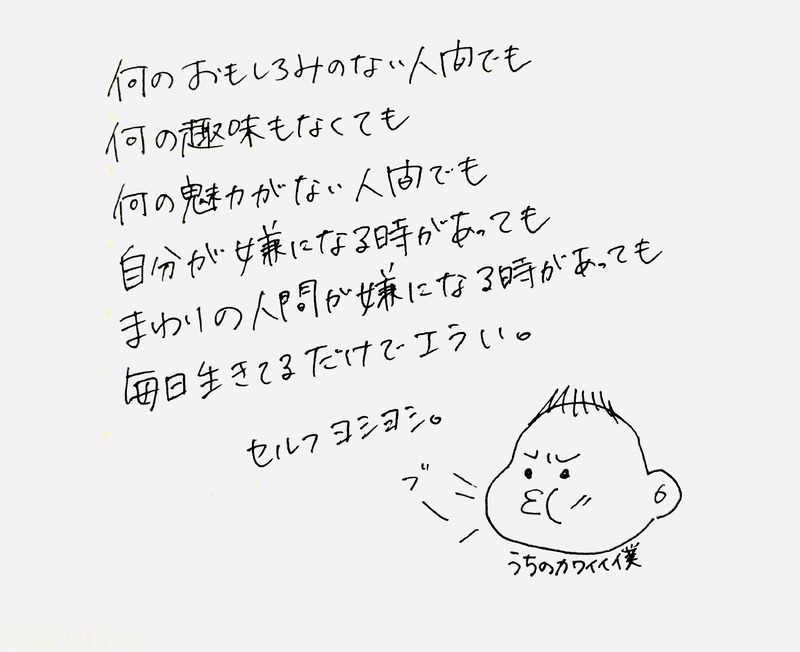 何のおもしろみのない人間でも
何の趣味もなくても
何の魅力がない人間でも
自分が嫌になる時があっても
まわりの人間が嫌になる時があっても
毎日生きてるだけでエうい。
セルフヨシヨシ。
ブー
うちのカワイイイ僕